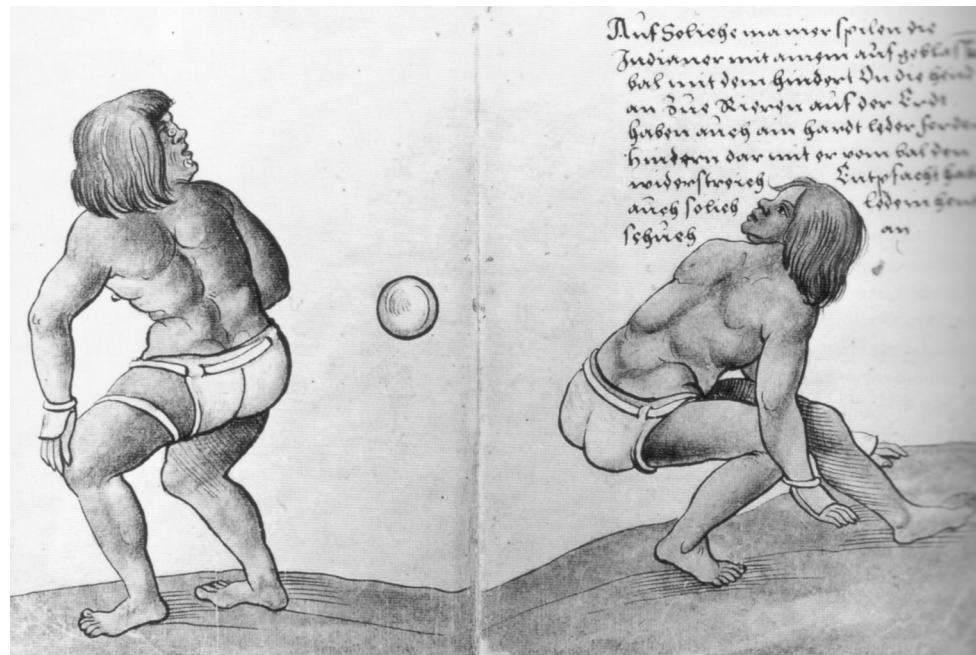 Auf Soliche manier spilen die
Indianer mit ainem auf geblas
bal mit dem hindert Un die hend
an Zue Rieren auf der Erdt
haben auch ain hardt leder for dem
hindern dar mit er vom bal den
widerstreich Entpfacht hab
auch solich ledern hend
schuch an